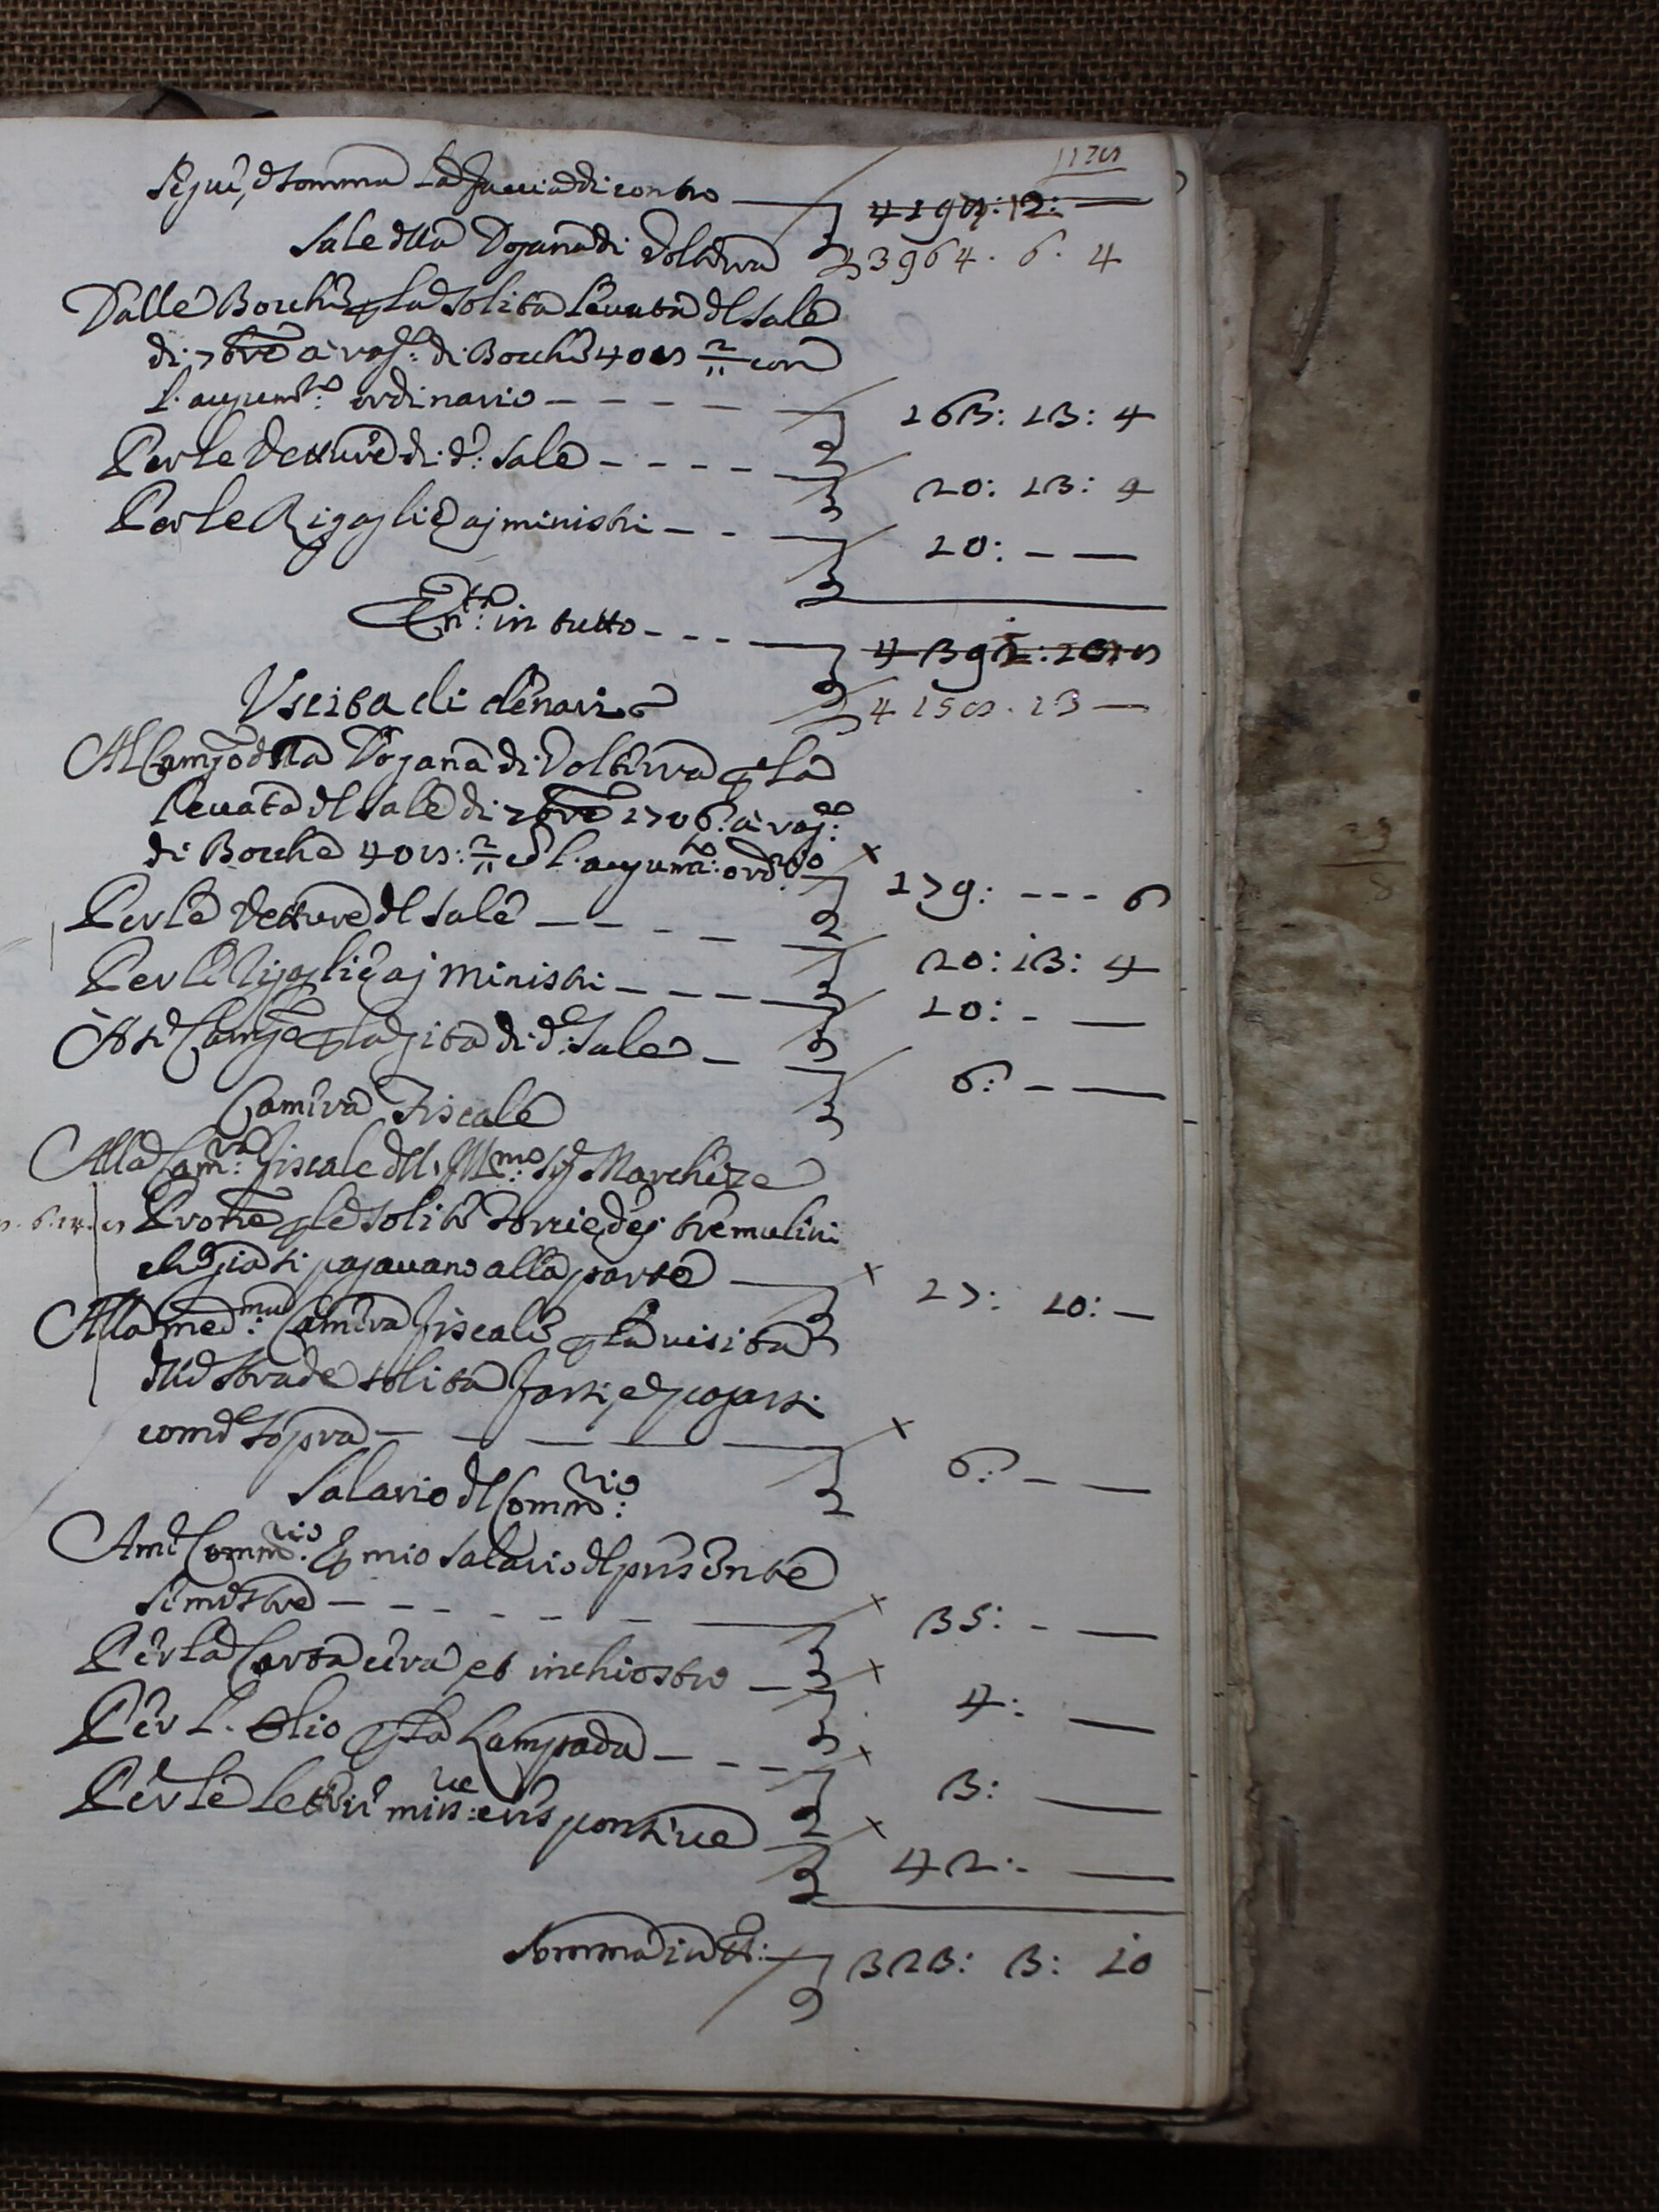 Segue, e somma la facciad di contro — 4194:12: —
Sale della Dogana di Volterra 3964. 6. 4
Dalle Bocche p la solita levata del sale
di 7bre a rag.e di Bocche 405 2/11 con
l'augum.to ordinario — 163: 13: 4
Per le vetture di d.o sale — 20: 13: 4
Per le Rigaglie a i ministri — 10: — —
Ent.ta in tutto —
4159. 13 —
Uscita di denari
Al Camg.o della Dogana di Volterra p la
levata del sale di 7bre 1706. a rag.e
di Bocche 405: 2/11 e l'augum.to ord.rio — 179: --- 6
Per le vetture del sale — 20: 13: 4
Per le Rigaglie a i ministri — 10: - —
Camg.e p la gita di d.o sale — 6: — —
Camera Fiscale
Alla Cam.ra fiscale dell' Ill.mo Sig.e Marchese
p le solite torrie dei tre mulini
che già si pagavano alla parte — 17: 10: —
Alla med.ma Camera fiscale p la visita
delle strade solita farsi, e pagarsi
come sopra — 6: — —
Salario del Comm.rio
A me Comm.rio p mio salario del presente
semestre — 35: - —
Per la Carta cera et inchiostro — 4: —
Per l'olio p la Lampada — 3: —
Per le lettere miss.ve e responsive — 42: —
Somma in tt.o: — 323: 3: 10